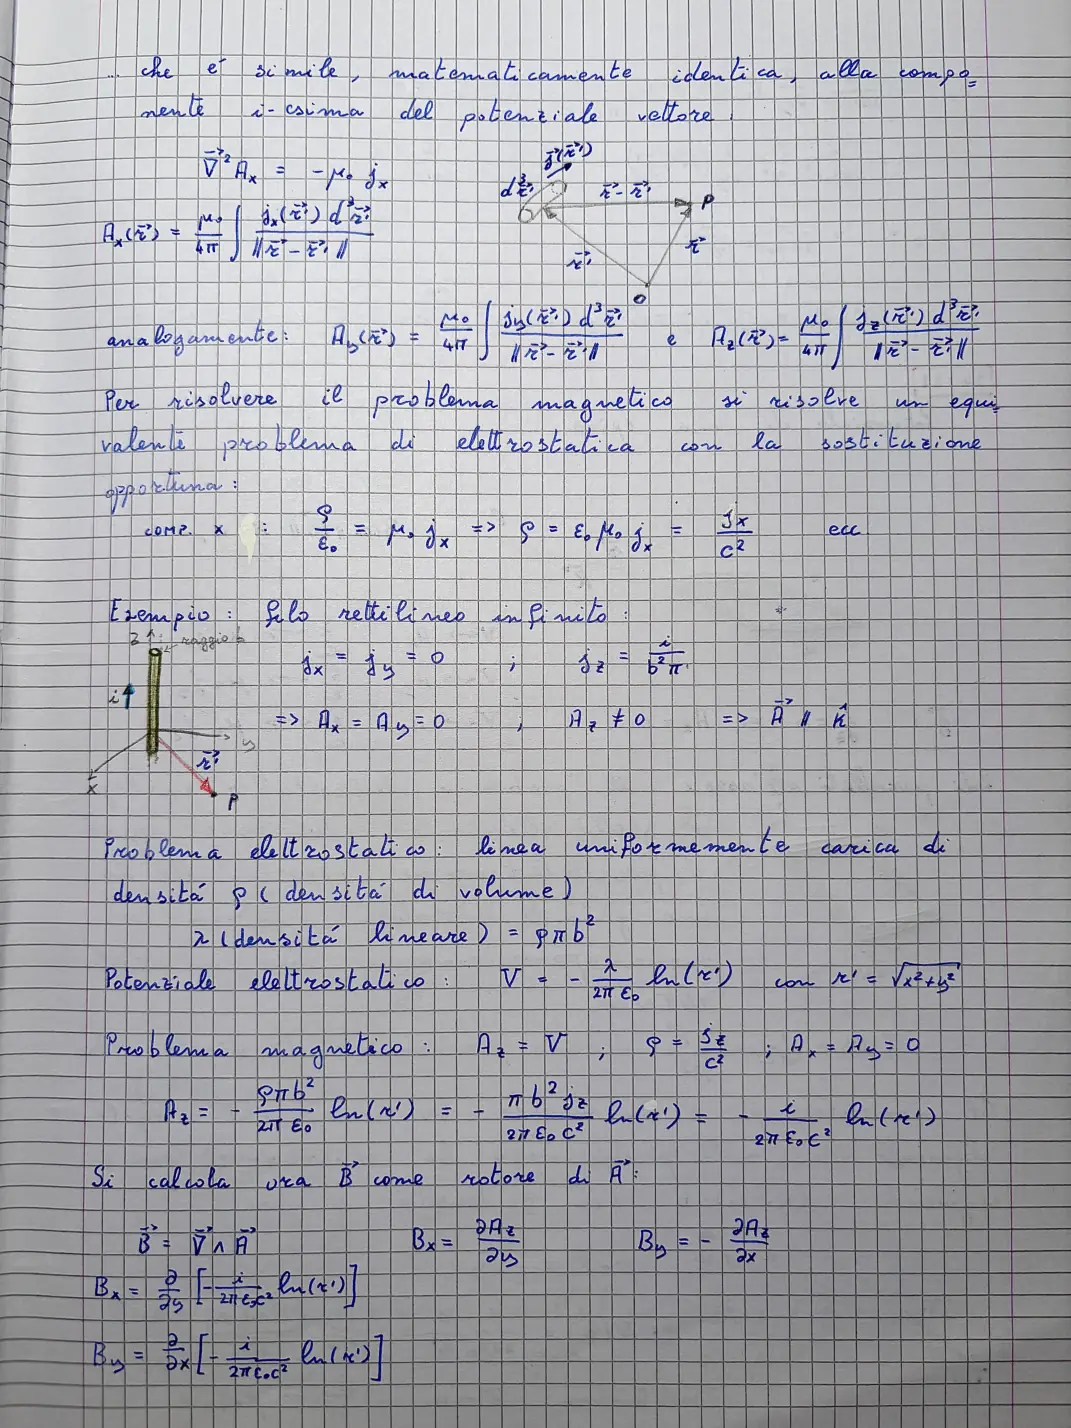 ... che é simile, matematicamente identica, alla compo=
nente i-esima del potenziale vettore.
∇⃗² Aₓ = -μ₀ jₓ
d³r⃗' j⃗(r⃗') r⃗ - r⃗' P r⃗' r⃗ O
Aₓ(r⃗) = μ₀/4π ∫ jₓ(r⃗') d³r⃗' / ||r⃗ - r⃗'||
analogamente: A_y(r⃗) = μ₀/4π ∫ j_y(r⃗') d³r⃗' / ||r⃗ - r⃗'|| e A_z(r⃗) = μ₀/4π ∫ j_z(r⃗') d³r⃗' / ||r⃗ - r⃗'||
Per risolvere il problema magnetico si risolve un equi=
valente problema di elettrostatica con la sostituzione
opportuna:
comp. x : ρ/ε₀ = μ₀ jₓ => ρ = ε₀ μ₀ jₓ = jₓ/c² ecc
Esempio: filo rettilineo infinito:
z raggio b
i y x r⃗' P
jₓ = j_y = 0 ; j_z = i/b²π
=> Aₓ = A_y = 0 , A_z ≠ 0 => A⃗ // k̂
Problema elettrostatico: linea uniformemente carica di
densitá ρ (densitá di volume)
λ (densitá lineare) = ρπb²
Potenziale elettrostatico: V = - λ/2πε₀ ln(r') con r' = √x²+y²
Problema magnetico: A_z = V ; ρ = j_z/c² ; Aₓ = A_y = 0
A_z = - ρπb²/2πε₀ ln(r') = - πb² j_z/2πε₀c² ln(r') = - i/2πε₀c² ln(r')
Si calcola ora B⃗ come rotore di A⃗:
B⃗ = ∇⃗ ∧ A⃗ Bₓ = ∂A_z/∂y B_y = - ∂A_z/∂x
Bₓ = ∂/∂y [- i/2πε₀c² ln(r')]
B_y = ∂/∂x [- i/2πε₀c² ln(r')]